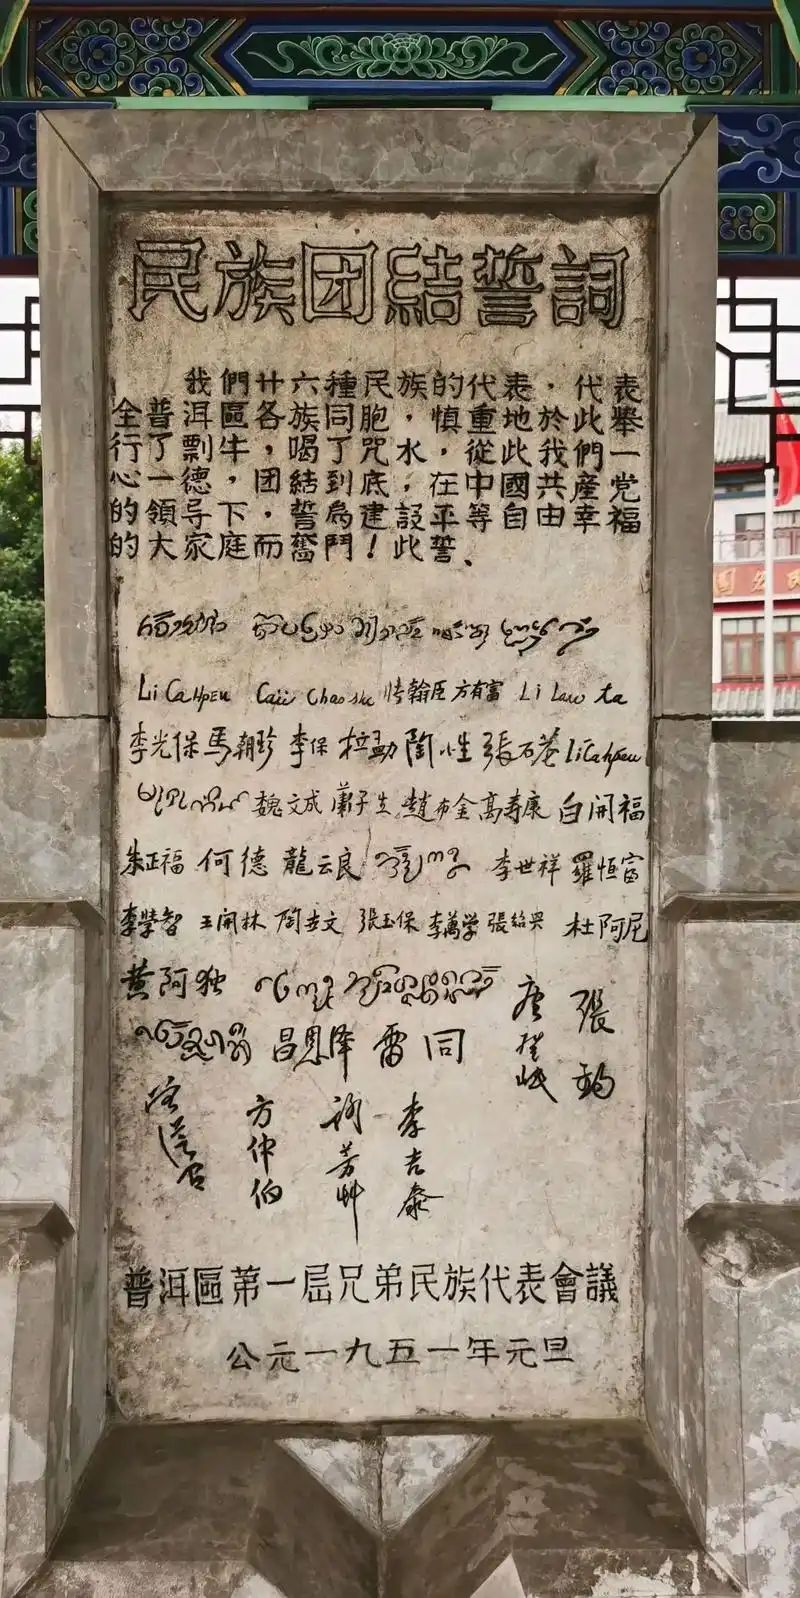 民族团結誓詞
我們廿六種民族的代表，代表
全普洱區各族同胞，慎重地於此舉
行了剽牛，喝了咒水，從此我們一
心一德，团結到底，在中國共產党
的領导下，誓爲建設平等自由幸福
的大家庭而奮鬥！此誓、
Li CaHpeu 方有富 Li Lao ta
李光保 馬朝珍 李保 拉勐 陶小生 張石菴 LiCahpeu
魏文成 蕭子生 趙布金 高寿康 白開福
朱正福 何德 龍云良 李世祥 羅恒富
李學智 王開林 陶世文 張玉保 李萬学 張紹興 杜阿尼
黄阿独 唐登岷 張鈞
昌恩泽 雷同
方仲伯 李吉泰
普洱區第一屆兄弟民族代表會議
公元一九五一年元旦